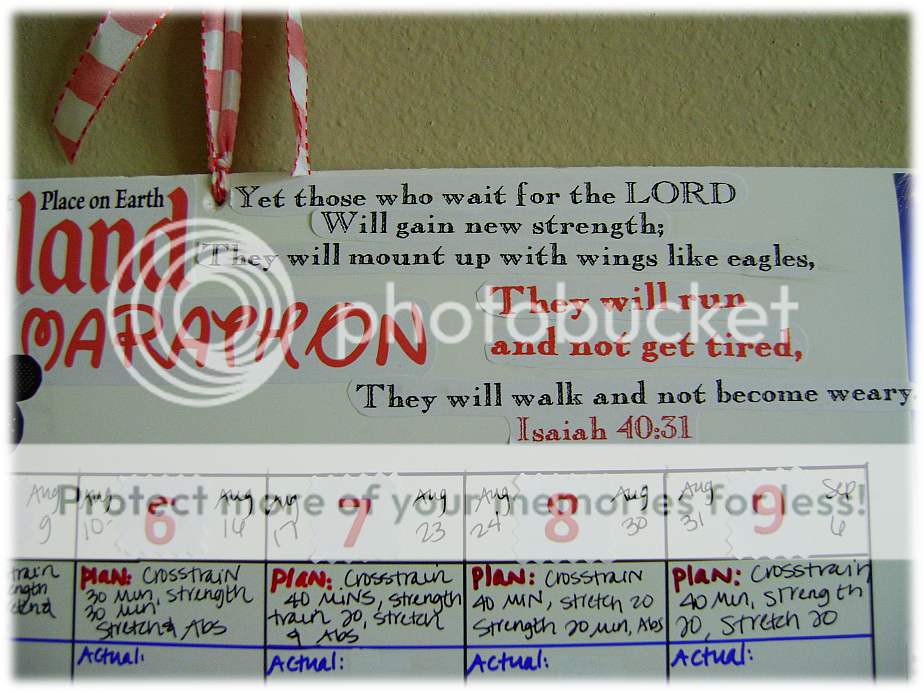 Place on Earth
land
MARATHON
Yet those who wait for the LORD
Will gain new strength;
They will mount up with wings like eagles,
They will run
and not get tired,
They will walk and not become weary
Isaiah 40:31
photobucket
Protect more of your memories for less!
Aug 9
Aug 10- 6 Aug 16
Aug 17 7 Aug 23
Aug 24 8 Aug 30
Aug 31 9 Sep 6
train
ength
Plan: Crosstrain
30 min, strength
30 min,
Stretch & Abs
Actual:
Plan: Crosstrain
40 mins, strength
train 20, stretch
& Abs
Actual:
Plan: Crosstrain
40 min, stretch 20
Strength 20 min, Abs
Actual:
Plan: Crosstrain
40 min, strength
20, stretch 20
Actual: